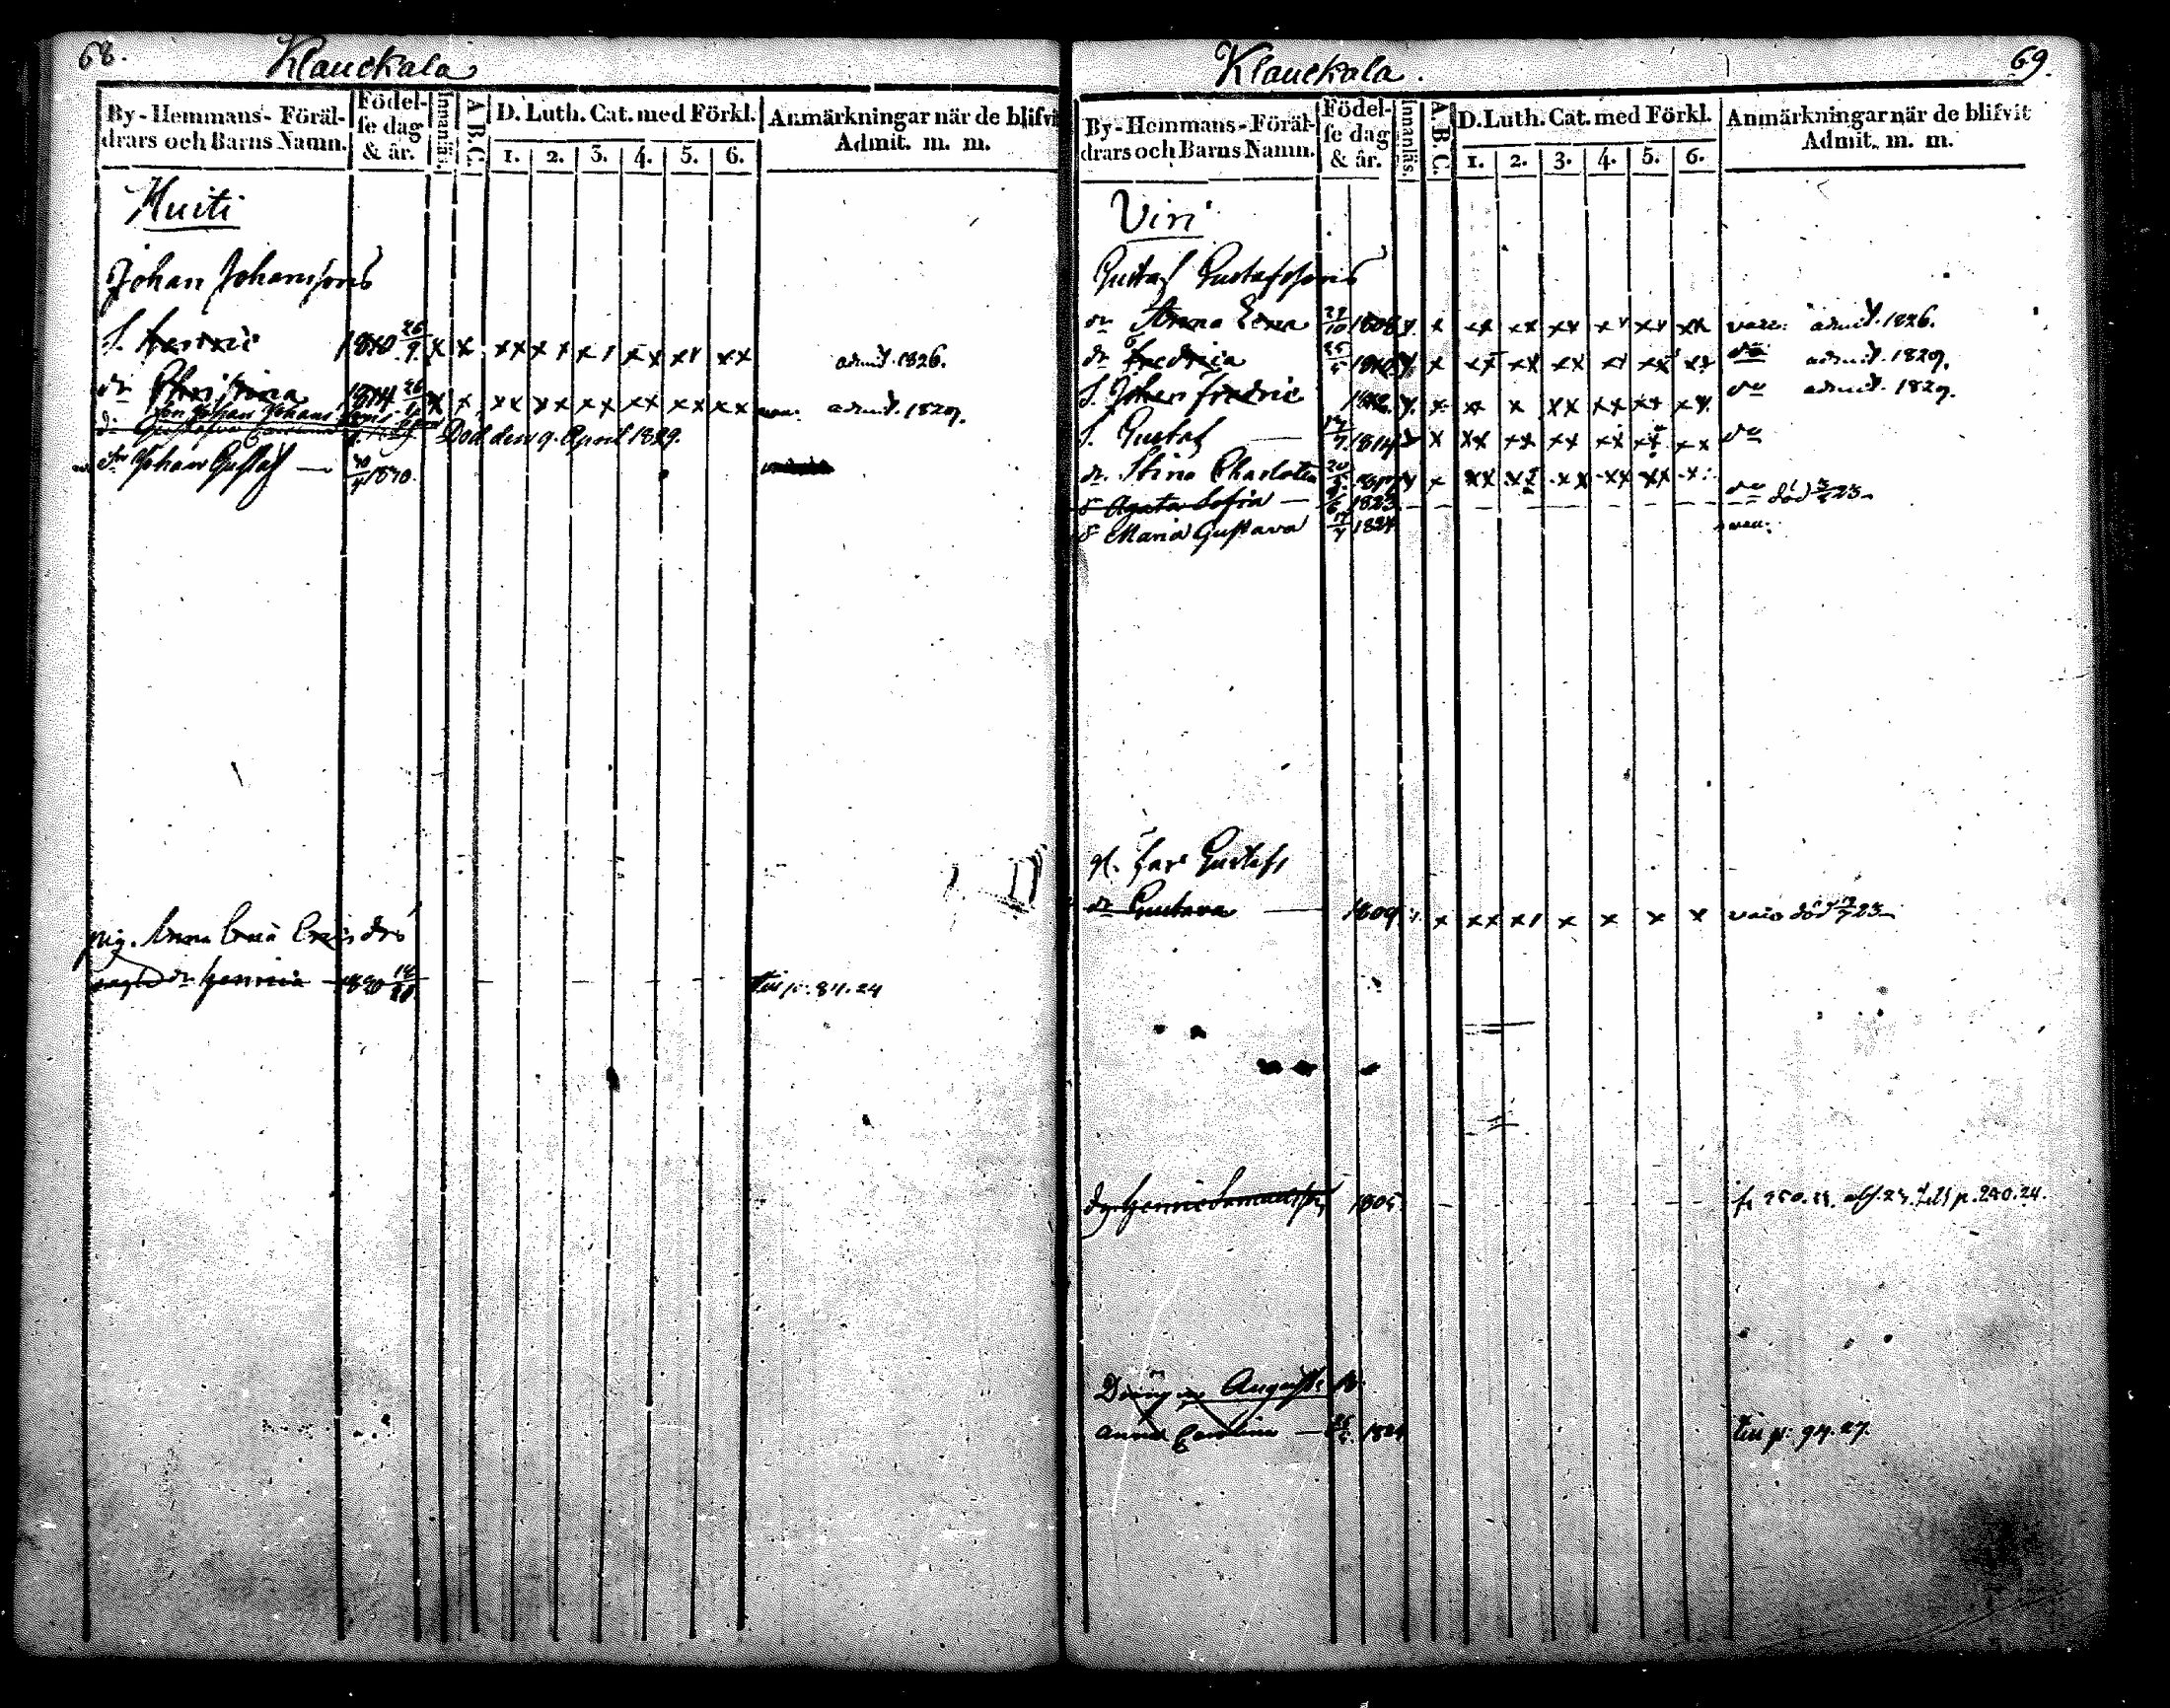 68.
Klauckala
By-Hemmans-Föräl-
drars och Barns Namn.
Födel-
se dag
& år.
Innanläs.
A.B.C.
D. Luth. Cat. med Förkl.
1. 2. 3. 4. 5. 6.
Anmärkningar när de blifvit
Admit. m. m.
Huiti
Johan Johanssons
S. Henric 1810 26/9 x x xx xx xx xx xx xx admit. 1826.
dr Christina 1814 x x xx xx xx xx xx xx admit. 1829.
Död den 9. April 1829.
Johan Gustaf — 1830.
pig. Anna
dr Henrica 1820 p. 84. 24
69.
Klauckala.
By-Hemmans-Föräl-
drars och Barns Namn.
Födel-
se dag
& år.
Innanläs.
A.B.C.
D. Luth. Cat. med Förkl.
1. 2. 3. 4. 5. 6.
Anmärkningar när de blifvit
Admit. m. m.
Viri
Gustaf Gustafssons
dr Anna 1808 x xx xx xx xx xx xx vacc: admit. 1826.
dr Fredrica x xx xx xx xx xx xx do admit. 1829.
S. Johan Fredric x xx x xx xx xx do admit. 1829.
S. Gustaf — 1814 x xx xx xx xx xx xx do
dr Stina Charlotta 1817 x xx
Agata Sofia — 1823 do död 23.
Maria Gustava 1824 vacc.
Gustafs
dr Gustava — 1809 x xx x x x x död 23
dr. Henric 1805. p. 240. 24.
August
Anna Carolina — p. 94. 27.